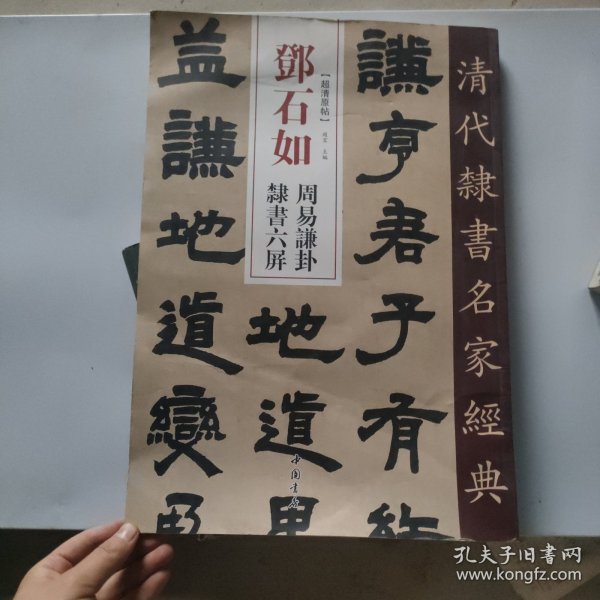 清代隸書名家經典
【超清原帖】
鄧石如
周易謙卦
隸書六屏
謙亨君子有終
地道
益謙地道變
中国書店
孔夫子旧书网
www.kongfz.com